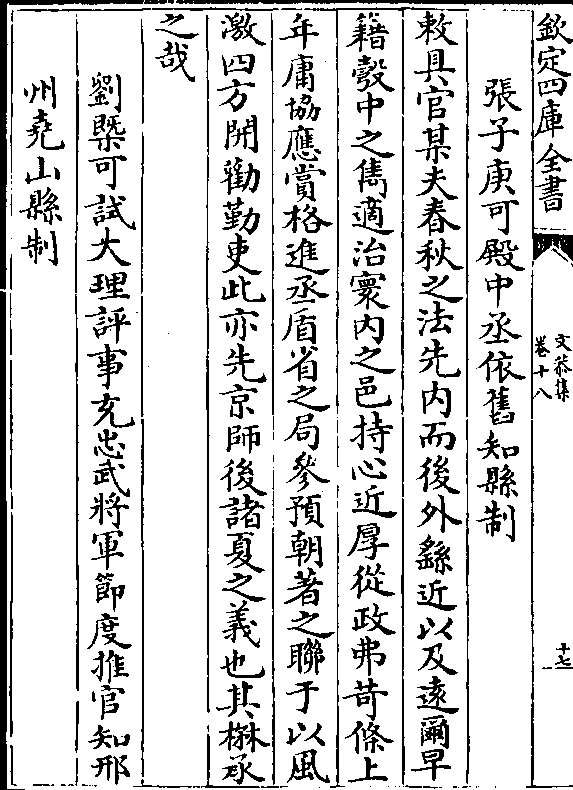 欽定四庫全書
文恭集
卷十八
十七
張子庚可殿中丞依舊知縣制
敕具官某夫春秋之法先内而後外繇近以及遠爾早
籍彀中之雋適治寰内之邑持心近厚從政弗苛條上
年庸協應賞格進丞盾省之局參預朝著之聯于以風
激四方開勸勤吏此亦先京師後諸夏之義也其楙承
之哉
劉槩可試大理評事充忠武將軍節度推官知邢
州堯山縣制